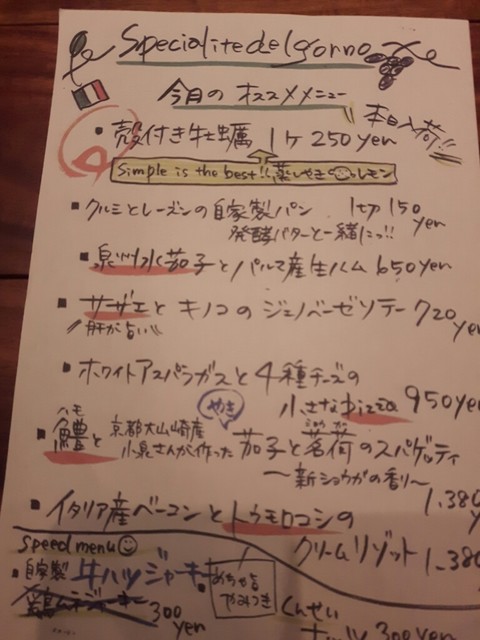 Specialite del giorno
今月の オススメメニュー
本日入荷!!
・殻付き牡蠣 1ケ 250 yen
Simple is the best!! 蒸しやき レモン
クルミとレーズンの自家製パン 1切 150 yen
発酵バターと一緒にっ!!
泉州水茄子とパルマ産生ハム 650 yen
サザエとキノコのジェノベーゼソテー 720 yen
肝が旨い
ホワイトアスパラガスと4種チーズの
小さなpizza 950 yen
ハモ
鱧と 京都大山崎産 小泉さんが作った やき 茄子と茗荷のスパゲッティ
～新ショウガの香り～
1.380
イタリア産ベーコンとトウモロコシの
クリームリゾット 1.380
speed menu
自家製 牛ハツジャーキー
めちゃうま やみつき
300 yen
くんせい
300 yen